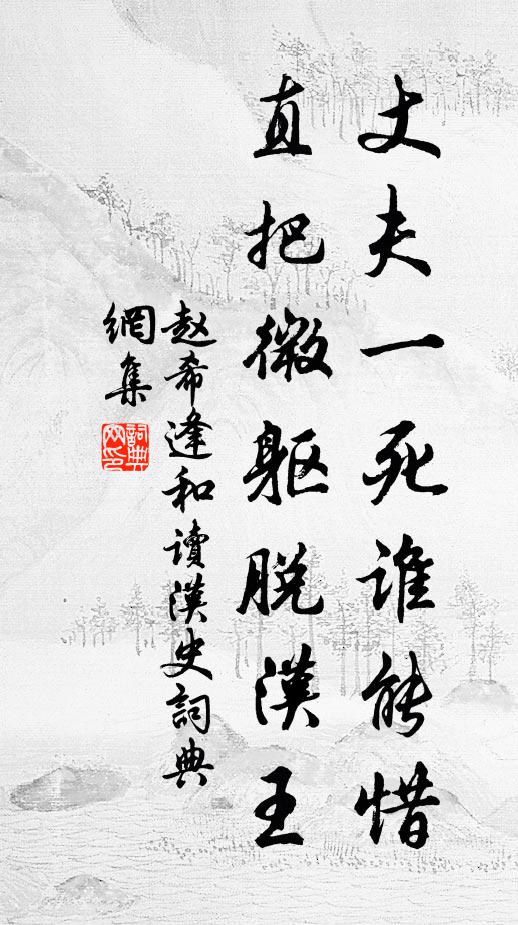 丈夫一死谁能惜
直把微躯脱漢王
赵希逢和讀漢史詞典
網集
詞典
网印